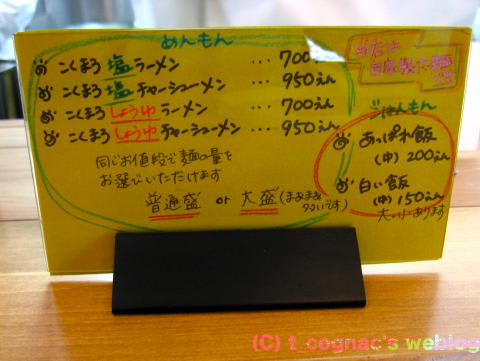 めんもん
こくまろ塩ラーメン … 700えん
こくまろ塩チャーシューメン … 950えん
こくまろしょうゆラーメン … 700えん
こくまろしょうゆチャーシューメン … 950えん
同じお値段で麺の量を
お選びいただけます
普通盛 or 大盛(まあまあ
多いです)
当店は
自家製太麺
です
ごはんもん
あっぱれ飯
(中) 200えん
白い飯
(中) 150えん
大・小あります
(C) t_cognac's weblog